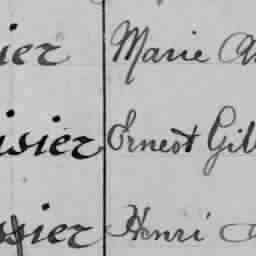 ier Marie A
isier Ernest Gil
ssier Henri